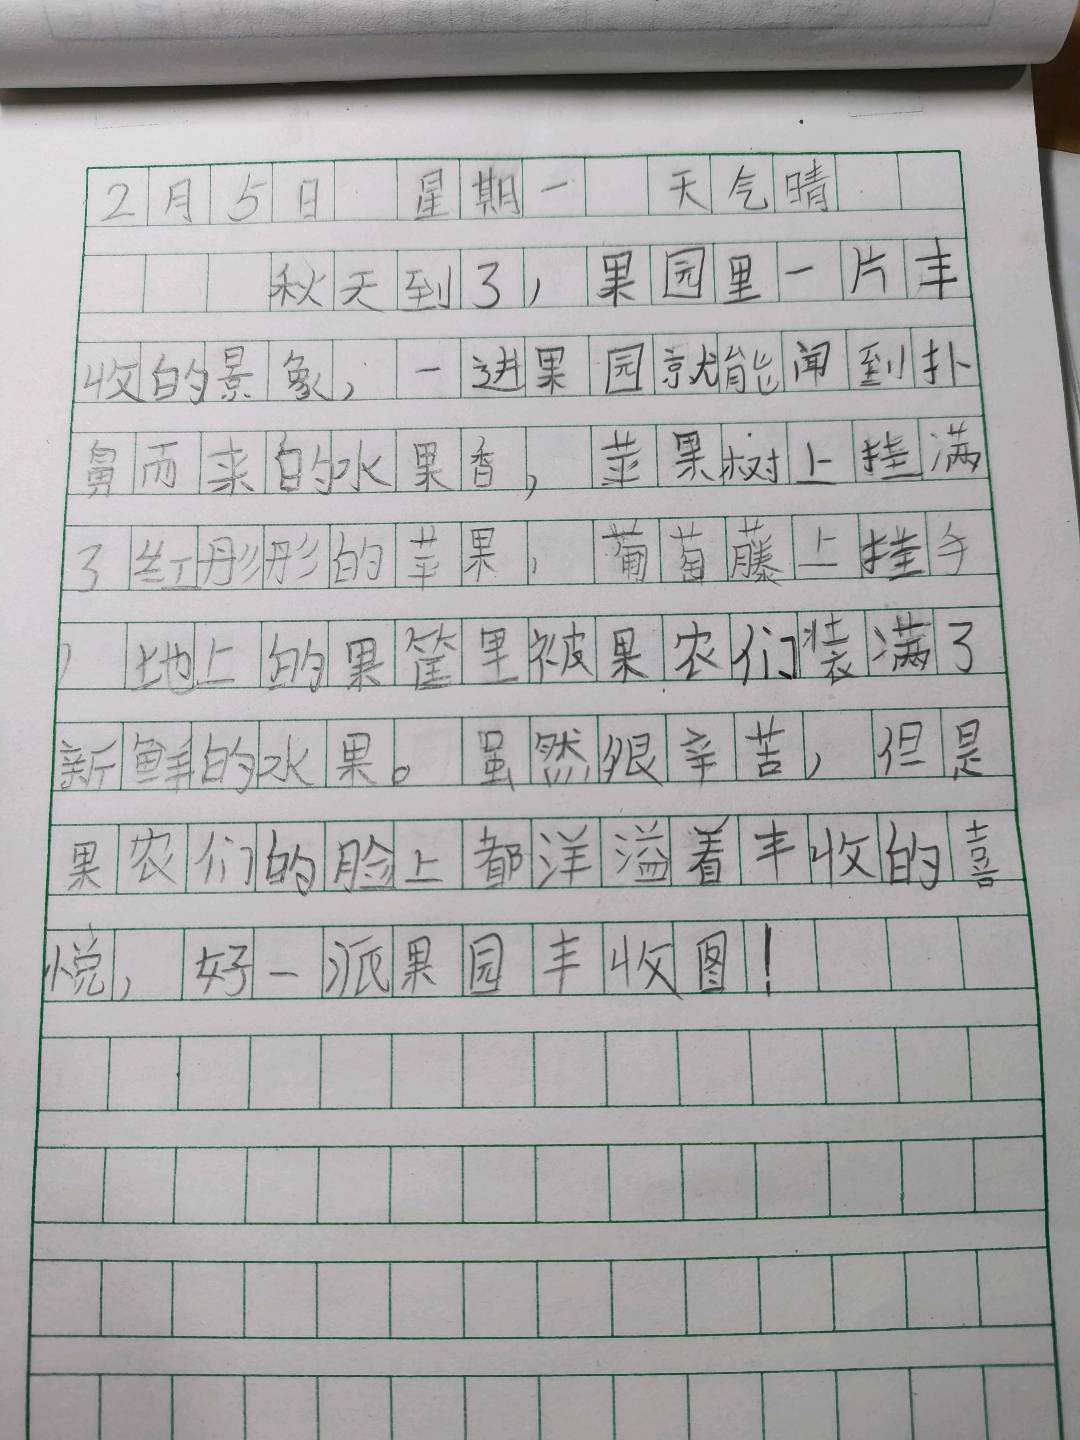 2月5日 星期一 天气晴
秋天到了，果园里一片丰
收的景象，一进果园就能闻到扑
鼻而来的水果香，苹果树上挂满
了红彤彤的苹果，葡萄藤上挂
，地上的果筐里被果农们装满了
新鲜的水果。虽然很辛苦，但是
果农们的脸上都洋溢着丰收的喜
悦，好一派果园丰收图！